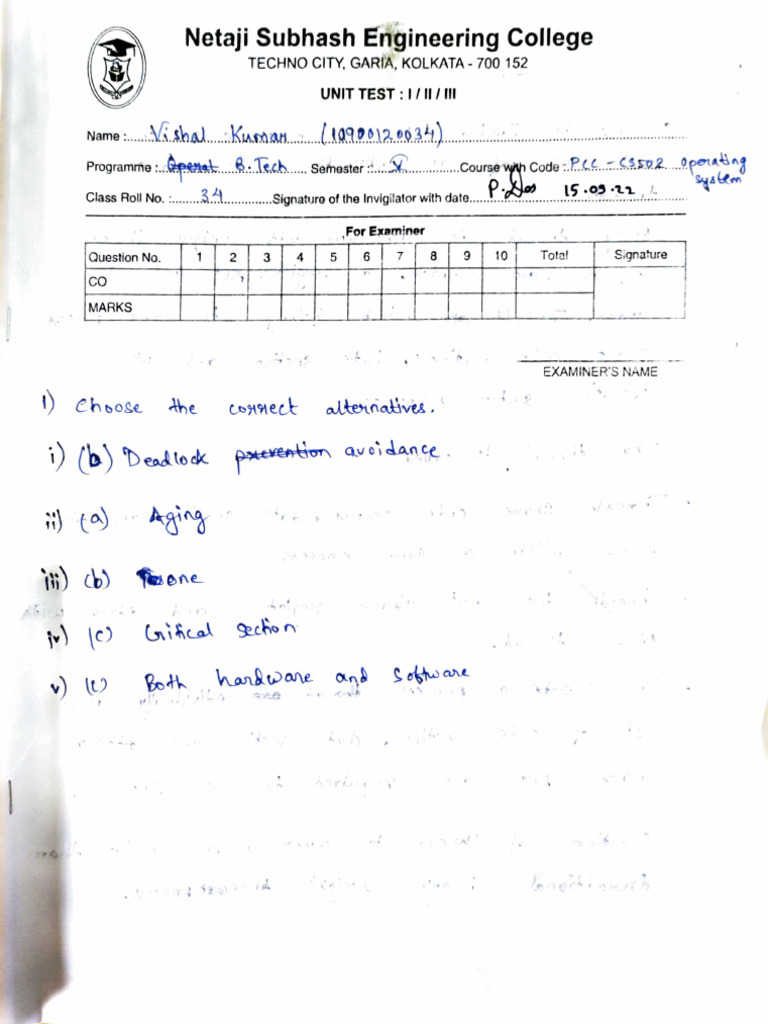 Netaji Subhash Engineering College
TECHNO CITY, GARIA, KOLKATA - 700 152
UNIT TEST : I / II / III
Name : Vishal Kumar (10900120034)
Programme : Operat B.Tech Semester : V Course with Code : PCC - CS502 Operating system
Class Roll No. : 34 Signature of the Invigilator with date P. Das 15.09.22
For Examiner
Question No. 1 2 3 4 5 6 7 8 9 10 Total Signature
CO
MARKS
EXAMINER'S NAME
1) Choose the correct alternatives.
i) (b) Deadlock prevention avoidance.
ii) (a) Aging
iii) (b) one
iv) (c) Critical section
v) (c) Both hardware and software